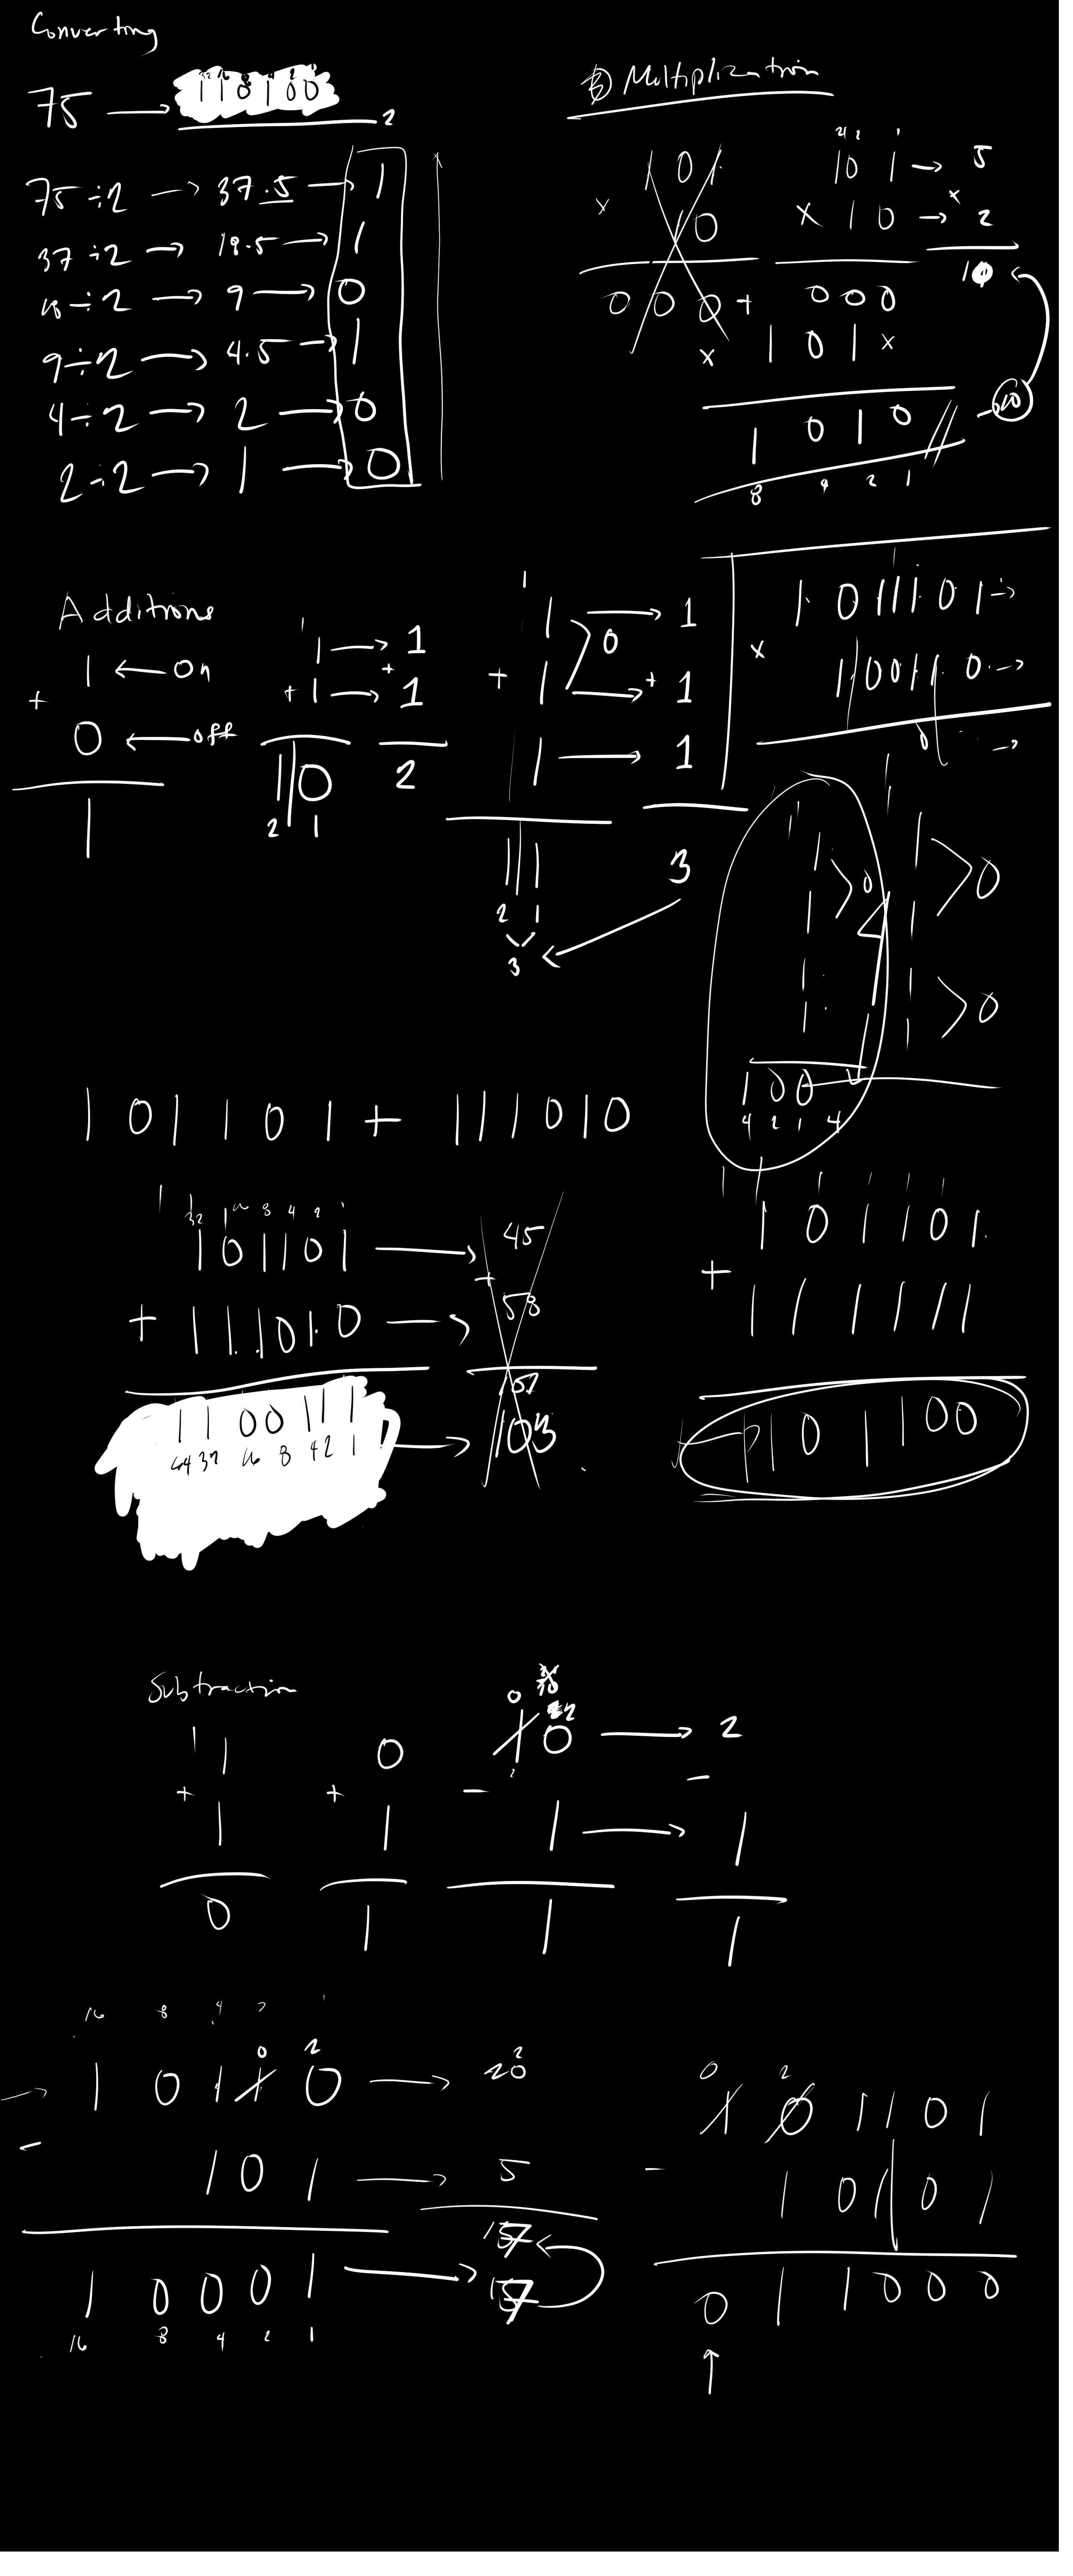 Converting
75 → 110100 2
75 ÷ 2 → 37.5 → 1
37 ÷ 2 → 18.5 → 1
18 ÷ 2 → 9 → 0
9 ÷ 2 → 4.5 → 1
4 ÷ 2 → 2 → 0
2 ÷ 2 → 1 → 0
3) Multiplization
4 2 1
1 0 1
x 1 0
0 0 0 +
x
1 0 1 → 5
x 1 0 → x 2
10
0 0 0
1 0 1 x
1 0 1 0
8 4 2 1
Additions
1 ← On
+
0 ← off
1
1
1 → 1
+ 1 → + 1
1 0
2
2 1
1
1 → 1
0
+ 1 → + 1
1 → 1
1 1
3
2 1
3
1 0 1 1 1 0 1 →
x
1 1 0 0 1 1 0 →
0 →
1 1
1
> 0
1
1
1
1 0 0
4 2 1 4
1
1
> 0
1
1
> 0
1
1 0 1 1 0 1 + 1 1 1 0 1 0
32 16 8 4 2 1
1 0 1 1 0 1 → 45
+ 1 1 1 0 1 0 → + 58
1 1 0 0 1 1 1
64 32 16 8 4 2 1
→ 103
1 0 1 1 0 1
+
1 1 1 1 1 1
1 1 0 1 1 0 0
Subtraction
1
+
1
0
0
+
1
1
0
2
1 0 → 2
- -
1 → 1
1 1
16 8 4 2 1
0 2
→ 1 0 1 1 0 →
-
1 0 1 → 5
1 0 0 0 1 →
16 8 4 2 1
0 2
1 0 1 1 0 1
-
1 0 1 0 1
0 1 1 0 0 0
↑